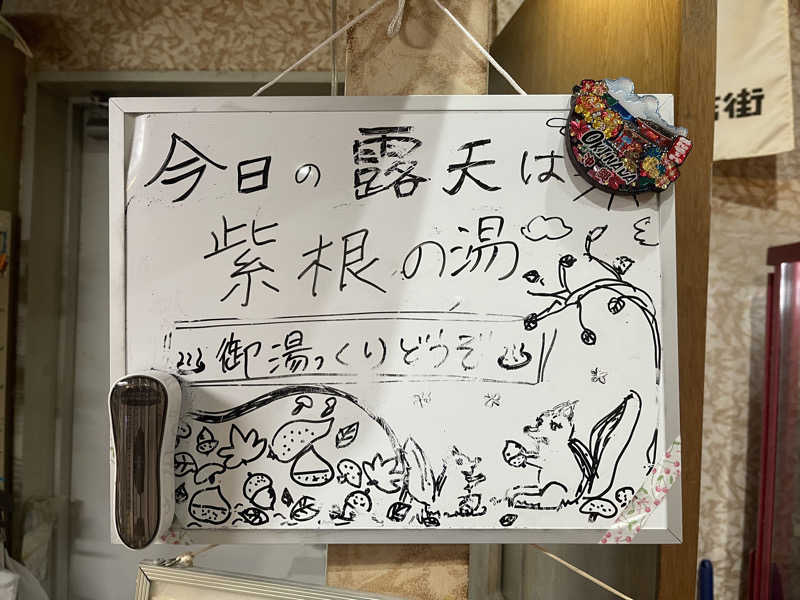 今日の露天は
紫根の湯
♨御湯っくりどうぞ♨
OKINAWA
街